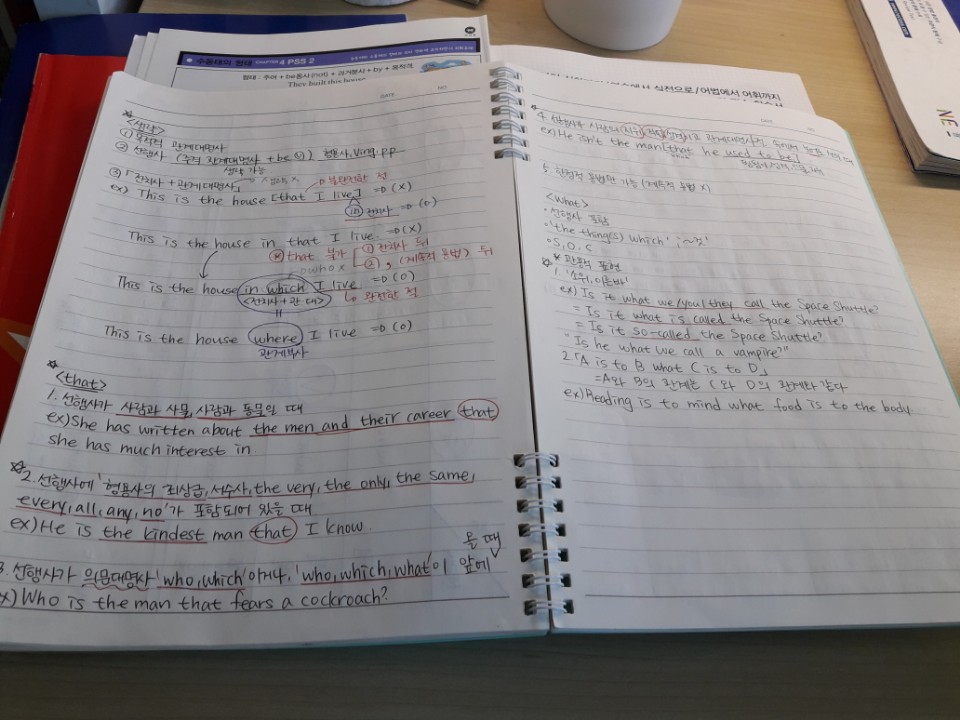 수동태의 형태 CHAPTER 4 PSS 2
형태 : 주어 + be동사 (not) + 과거분사 + by + 목적격
They built this house
실전으로/어법에서 어휘까지
NE
DATE NO
<생략>
① 목적격 관계대명사
② 선행사 (주격 관계대명사 + be동) 형용사, Ving, p.p
생략 가능
③ 「전치사 + 관계대명사」 생략 X
불완전한 절
ex) This is the house [that I live] =0 (X)
in 전치사 =0 (O)
This is the house in that I live. =0 (X)
that 불가 ① 전치사 뒤
who X ② , (계속적 용법) 뒤
This is the house in which I live =0 (O)
<전치사 + 관·대> 완전한 절
=
This is the house where I live =0 (O)
관계부사
<that>
1. 선행사가 사람과 사물, 사람과 동물일 때
ex) She has written about the men and their career that
she has much interest in.
2. 선행사에 '형용사의 최상급, 서수사, the very, the only, the same,
every, all, any, no'가 포함되어 있을 때
ex) He is the kindest man that I know.
올 때
3. 선행사가 의문대명사 'who, which'이거나, 'who, which, what'이 앞에
ex) Who is the man that fears a cockroach?
DATE NO
4. 선행사가 사람의
ex) He isn't the man [that he used to be]
5. 한정적 용법만 가능 (계속적 용법 X)
<What>
· 선행사 포함
· 'the thing(s) which' ; ~것
· S, O, C
* 관용적 표현
1. '소위, 이른바'
ex) Is it what we/you/they call the Space Shuttle?
= Is it what is called the Space Shuttle?
= Is it so-called the Space Shuttle?
"Is he what we call a vampire?"
2. 「A is to B what C is to D」
=A와 B의 관계는 C와 D의 관계와 같다
ex) Reading is to mind what food is to the body